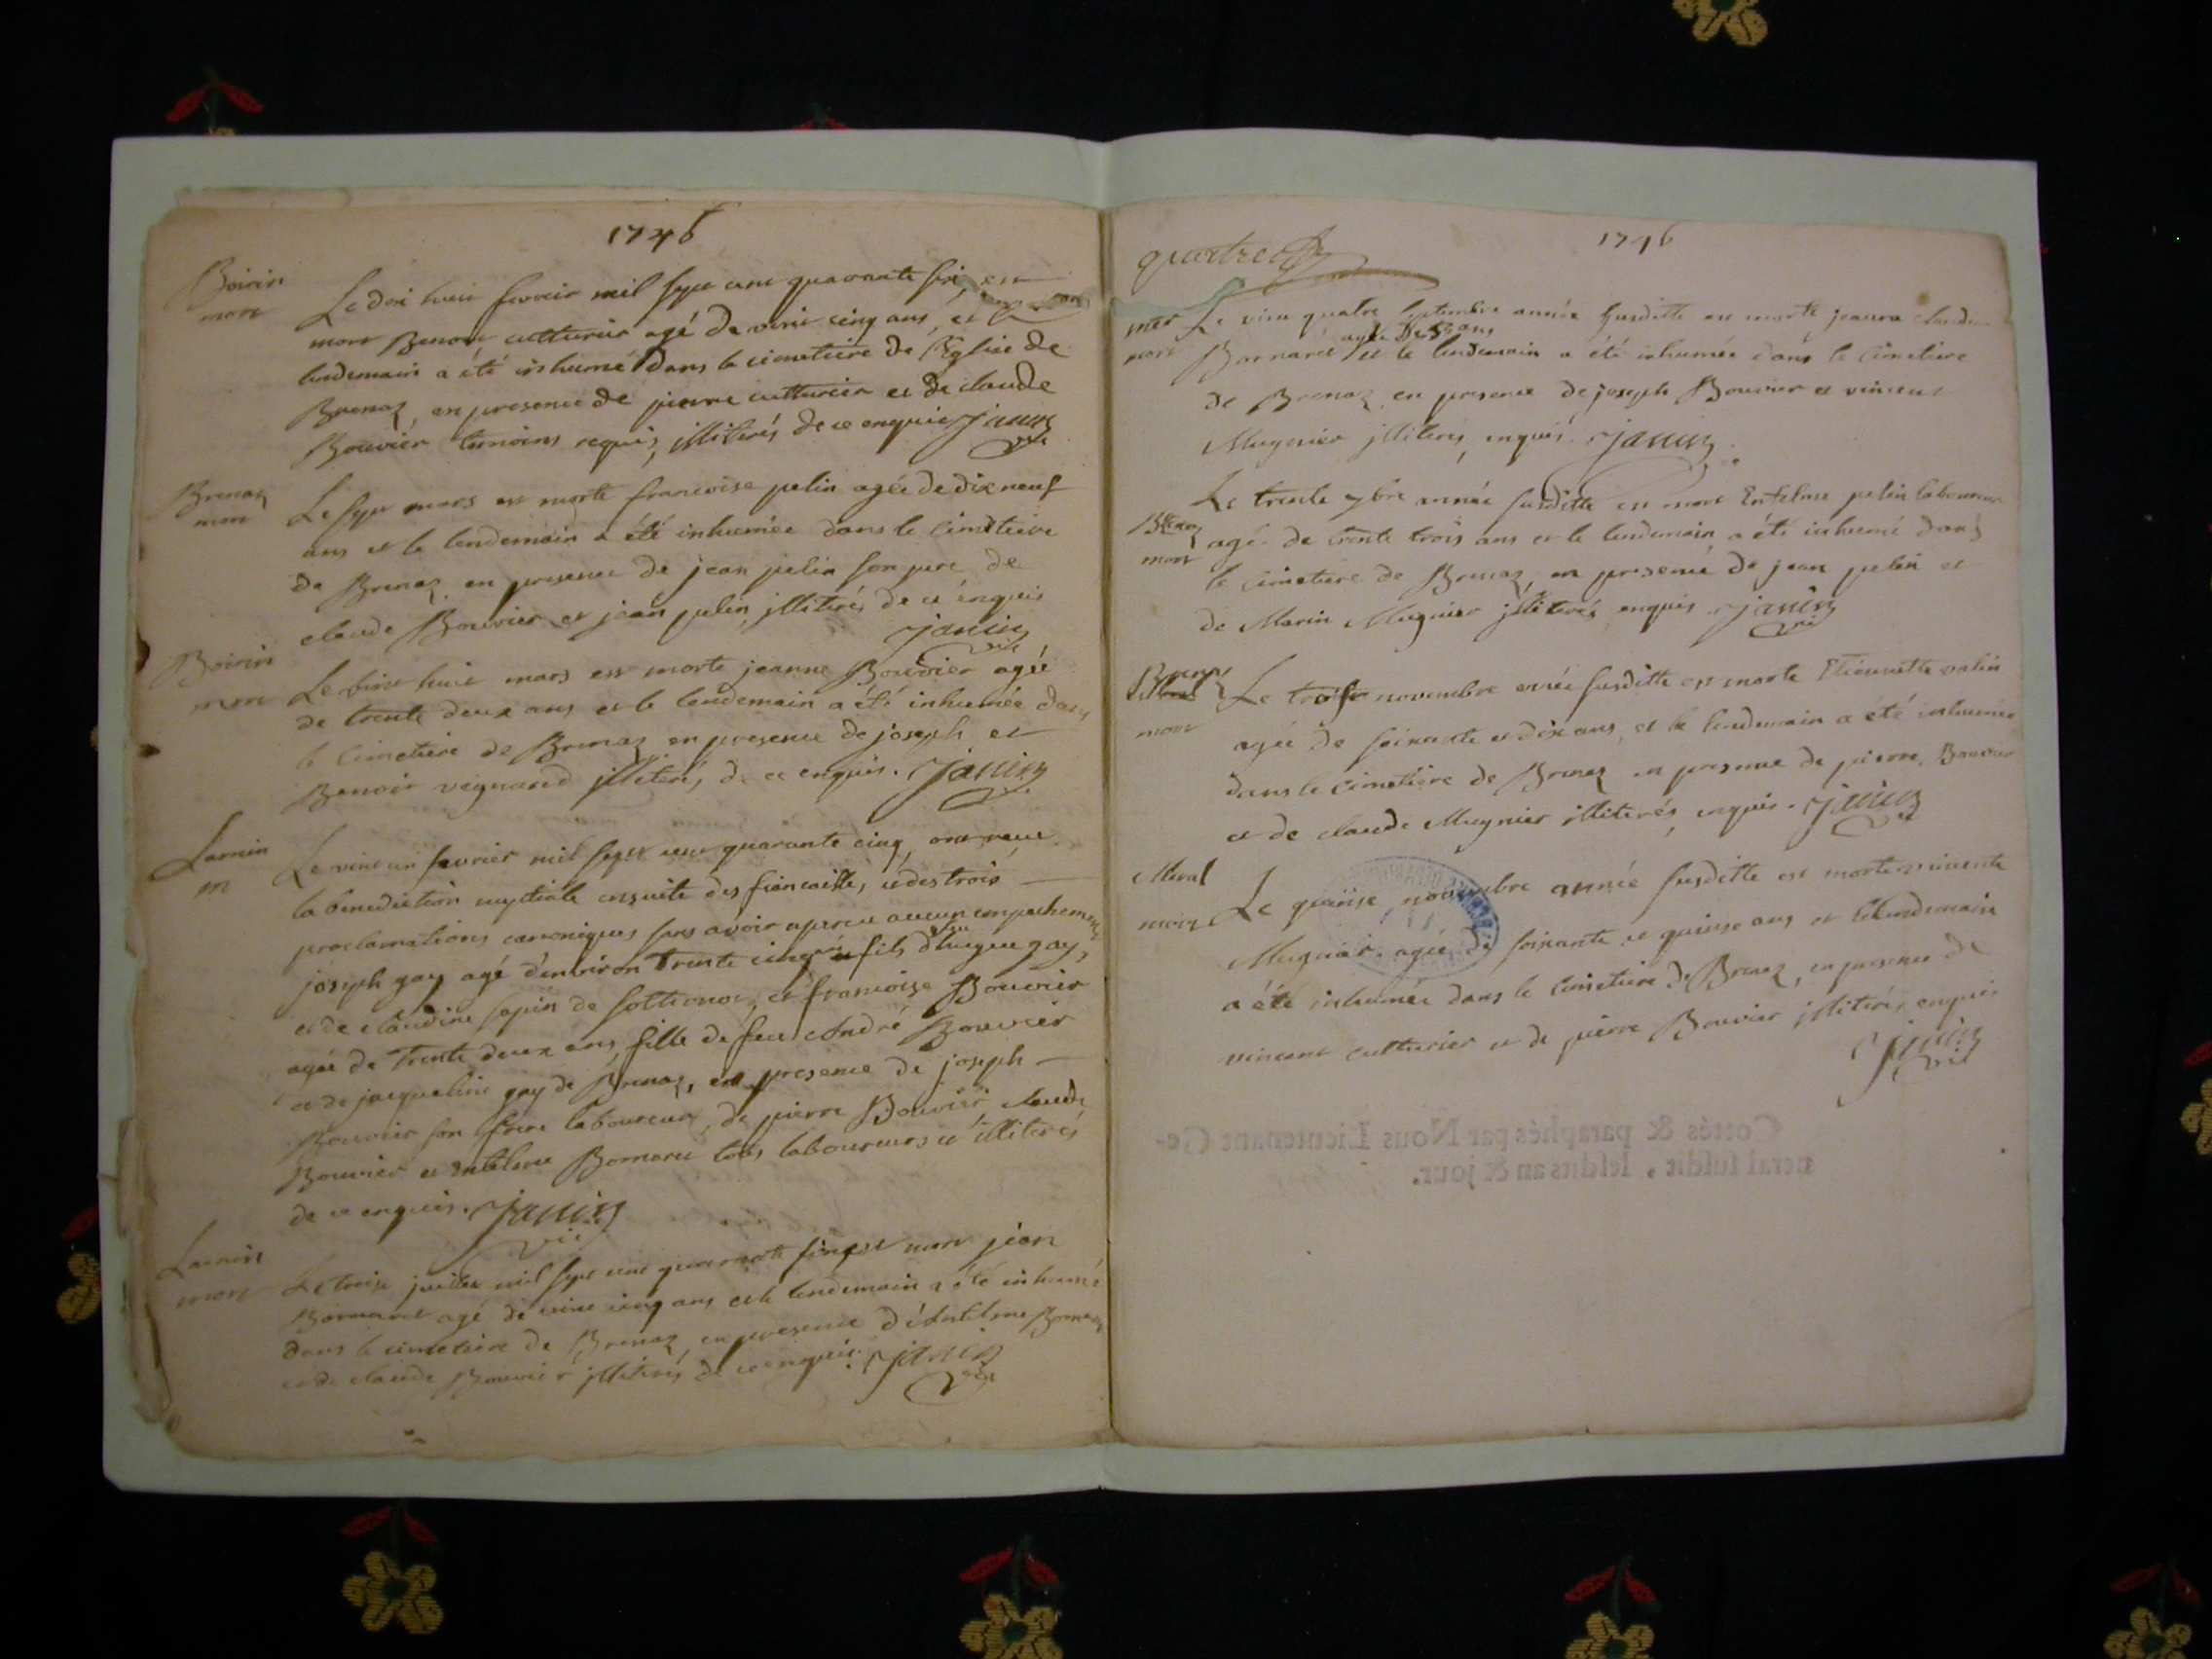 1746
Boirin
mort
Le dix huit fevrier mil sept cent quarante six, est
mort Benoit cutturier agé de vint cinq ans, et
lendemain a été inhumé dans le cimetiere de l'Eglise de
Brenaz, en presence de pierre cutturier et de claude
Bouvier temoins requis, illiterés de ce enquis Janin
vic
Brenaz
mort
Le sept mars est morte francoise pelin agée de dix neuf
ans et le lendemain a été inhumée dans le cimetiere
de Brenaz, en presence de jean pelin son pere, de
claude Bouvier et jean pelin, illiterés de ce enquis
janin
vic
Boirin
mort
Le vint huit mars est morte jeanne Bouvier agée
de trente deux ans et le lendemain a été inhumée dans
le Cimetiere de Brenaz en presence de joseph et
Benoit vignand illiterés, de ce enquis. Janin
vic
Larnin
m
Le vint un fevrier mil sept cent quarante cinq, ont receu
la benediction nuptiale ensuite des fiancailles, et des trois
proclamations canoniques sans avoir aperceu aucun empechement
joseph gay agé d'environ trente cinq ans fils d'hugue gay,
et de claudine sapin de sothonod, et francoise Bouvier
agée de trente deux ans fille de feu André Bouvier
et de jacqueline gay de Brenaz, en presence de joseph
Bouvier son frere laboureur, de pierre Bouvier, claude
Bouvier et Antelme Bornard tous laboureurs et illiterés
de ce enquis. Janin
vic
Larnin
mort
Le treise juillet mil sept cent quarante six est mort jean
Bornaret agé de vint cinq ans et le lendemain a été inhumé
dans le cimetiere de Brenaz, en presence d'Antelme
et de claude Bouvier illiterés de ce enquis. Janin
vic
1746
quatre
mort
Le vint quatre septembre année susditte est morte jeanne claudine
agée de 53 ans
Bornard et le lendemain a été inhumée dans le cimetiere
de Brenaz, en presence de joseph Bouvier et vincent
Mugnier illiterés, enquis. Janin
Brenaz
mort
Le trente 7bre année susditte est mort Entelme pelin laboureur
agé de trente trois ans et le lendemain a été inhumé dans
le cimetiere de Brenaz, en presence de jean pelin et
de Marin Mugnier illiterés enquis. janin
vic
Brenaz
Meral
mort
Le troise novembre année susditte est morte Etiennette valin
agée de soixante et dix ans, et le lendemain a été inhumée
dans le cimetiere de Brenaz en presence de pierre Bouvier
et de claude Mugnier illiterés, enquis. Janin
vic
Meral
mort
Le quinse novembre année susditte est morte
Mugnier agée de soixante et quinse ans et le lendemain
a été inhumée dans le cimetiere de Brenaz, en presence de
vincent cutturier et de pierre Bouvier illiterés enquis
Janin
vic
Cottés & paraphés par Nous Lieutenant Ge-
neral susdit, lesdits an & jour.